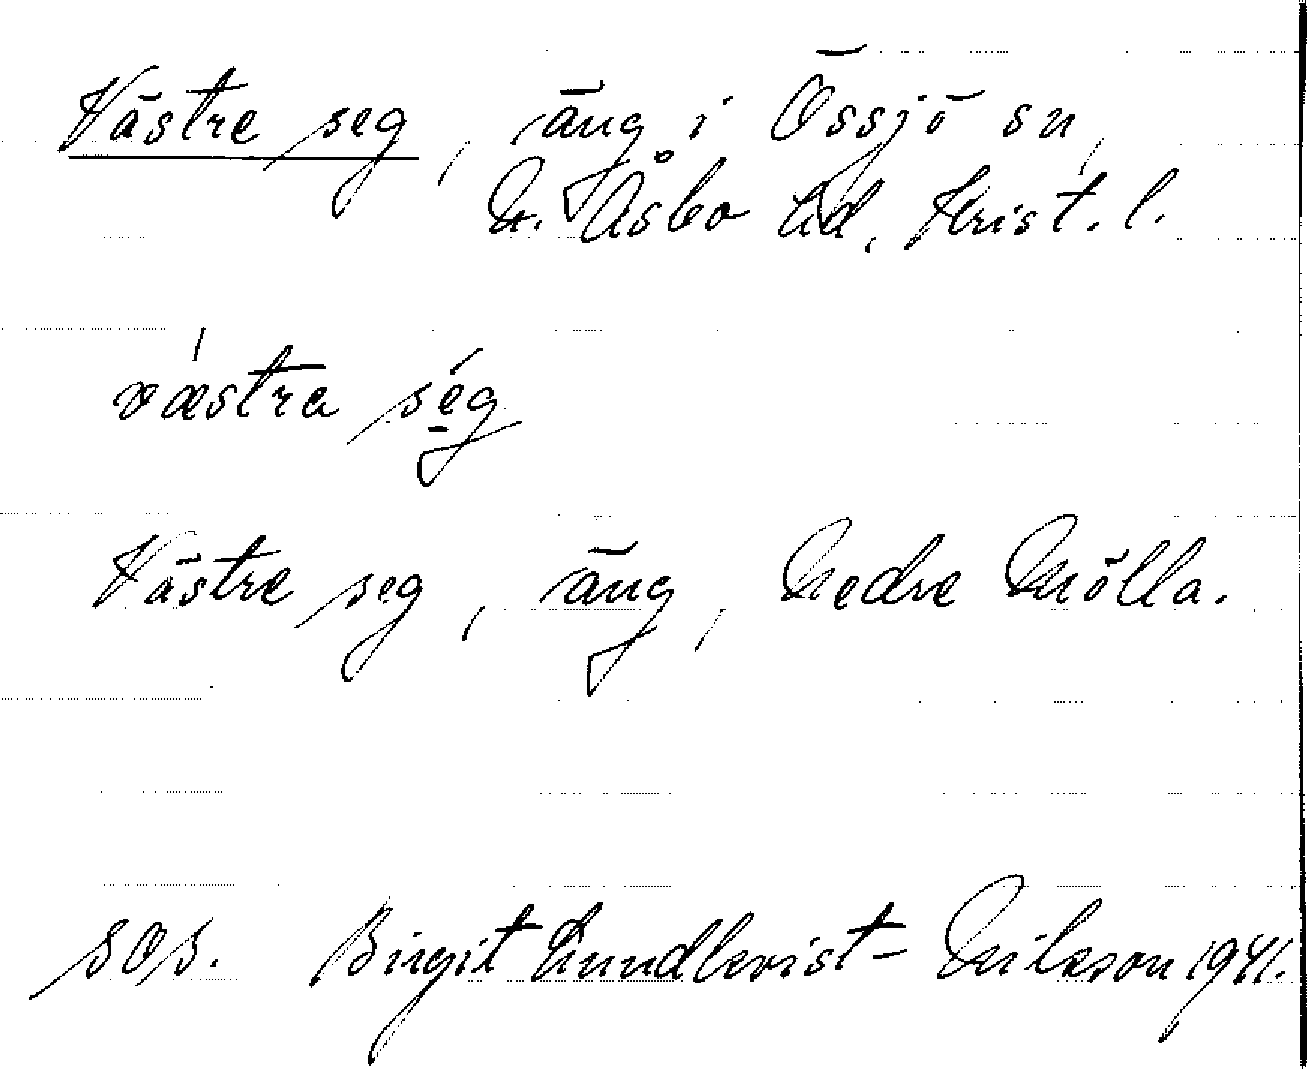 Västre seg, äng i Össjö sn,
N. Åsbo hd, Krist. l.
västra seg
Västre seg, äng, Nedre Mölla.
SOS. Birgit Lundkvist-Nilsson 1941.